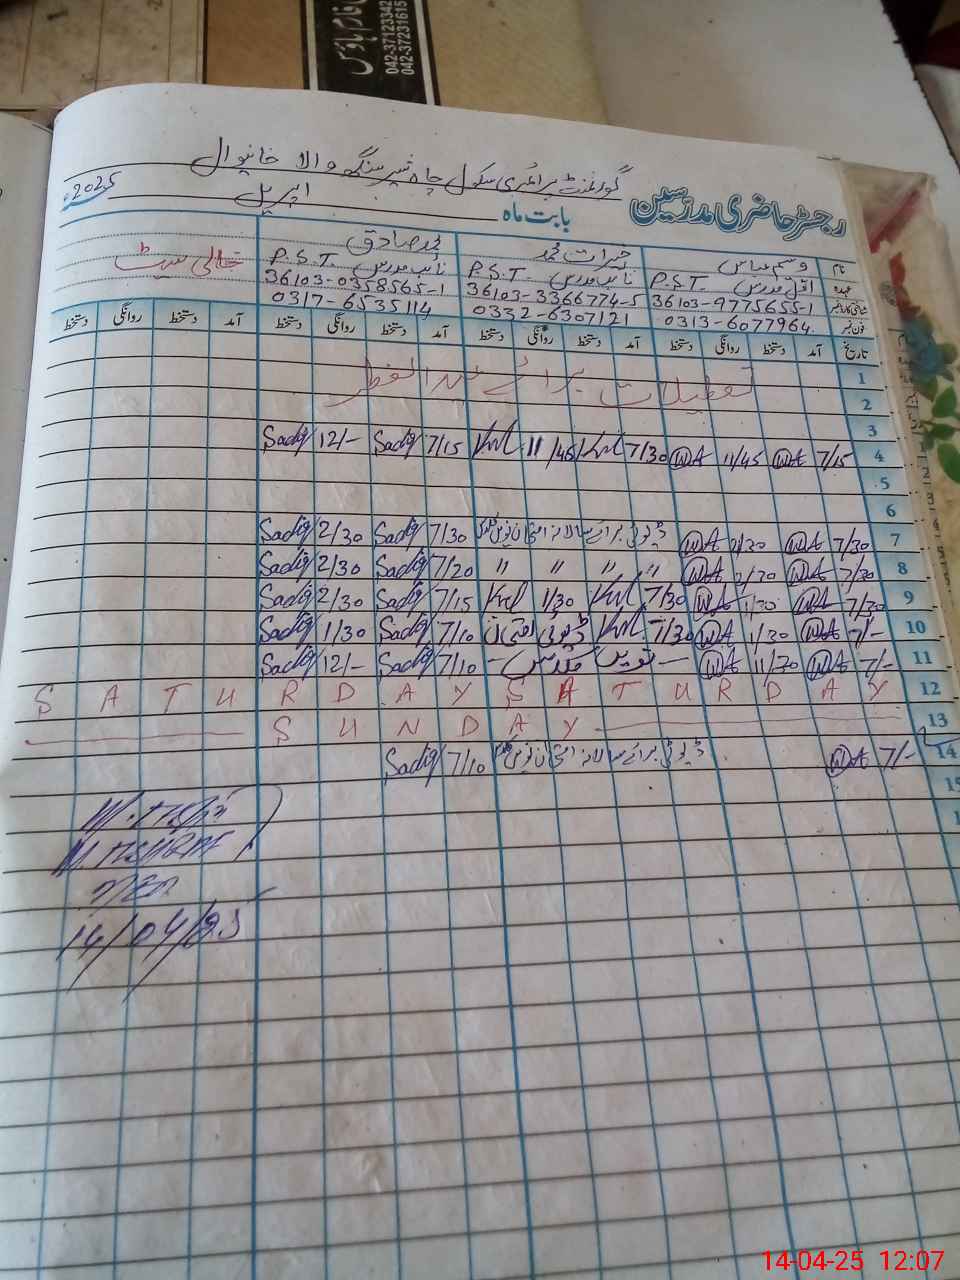 042-37123342
042-37231615
گورنمنٹ پرائمری سکول چاہ شیر سنگھ والا خانیوال
رجسٹر حاضری مدرسین بابت ماہ اپریل 2025
نام وسیم عباس خیرات محمد محمد صادق خالی سیٹ
عہدہ P.S.T. نائب مدرس P.S.T. نائب مدرس P.S.T.
شناختی کارڈ نمبر 36103-9775655-1 36103-3366774-5 36103-0358565-1
فون نمبر 0313-6077964 0332-6307121 0317-6535114
تاریخ آمد دستخط روانگی دستخط آمد دستخط روانگی دستخط آمد دستخط روانگی دستخط آمد دستخط روانگی دستخط
1 تعطیلات برائے عید الفطر
2
3
4 7/15 WA 11/45 WA 7/30 11/45 7/15 Sadiq 12/- Sadiq
5
6
7 7/30 WA WA ڈیوٹی برائے سالانہ امتحان 7/30 Sadiq 2/30 Sadiq
8 7/30 WA WA " " " " 7/20 Sadiq 2/30 Sadiq
9 7/30 WA 1/30 WA 7/30 1/30 7/15 Sadiq 2/30 Sadiq
10 7/- WA 1/30 WA 7/30 ڈیوٹی امتحان 7/10 Sadiq 1/30 Sadiq
11 7/- WA 11/30 WA 7/10 Sadiq 12/- Sadiq
12 S A T U R D A Y S A T U R D A Y
13 S U N D A Y
14 7/- WA ڈیوٹی برائے سالانہ امتحان 7/10 Sadiq
15
14/04/25
14-04-25 12:07